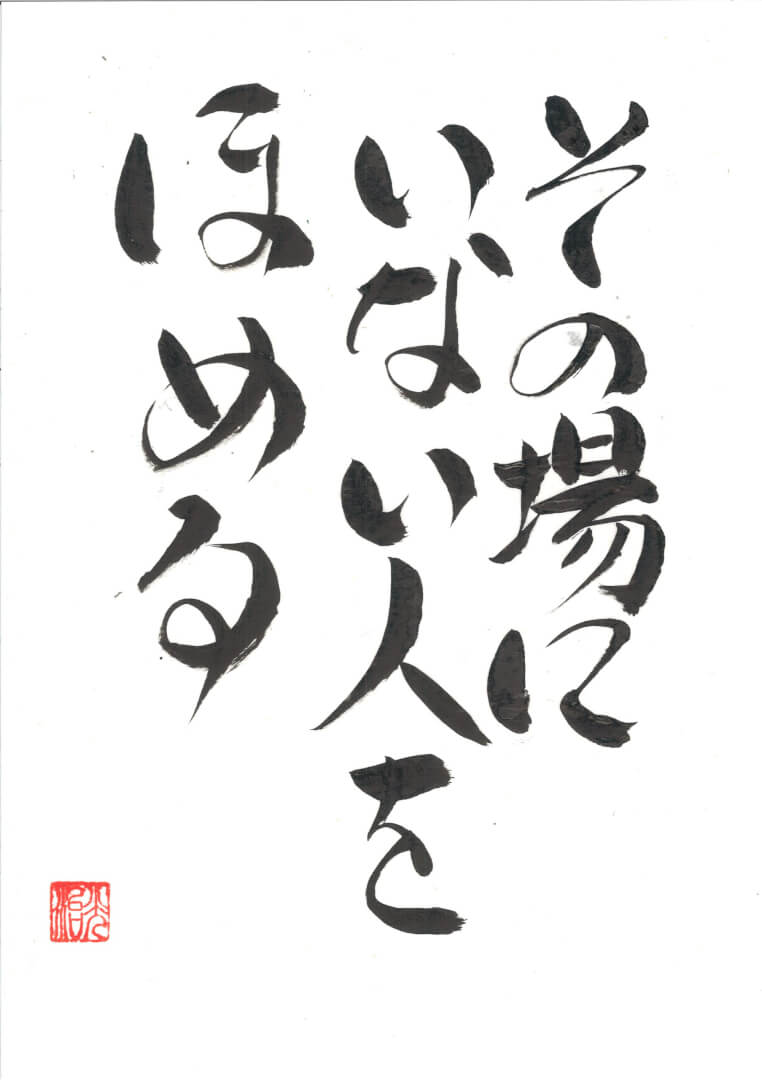 その場に
いない人を
ほめる